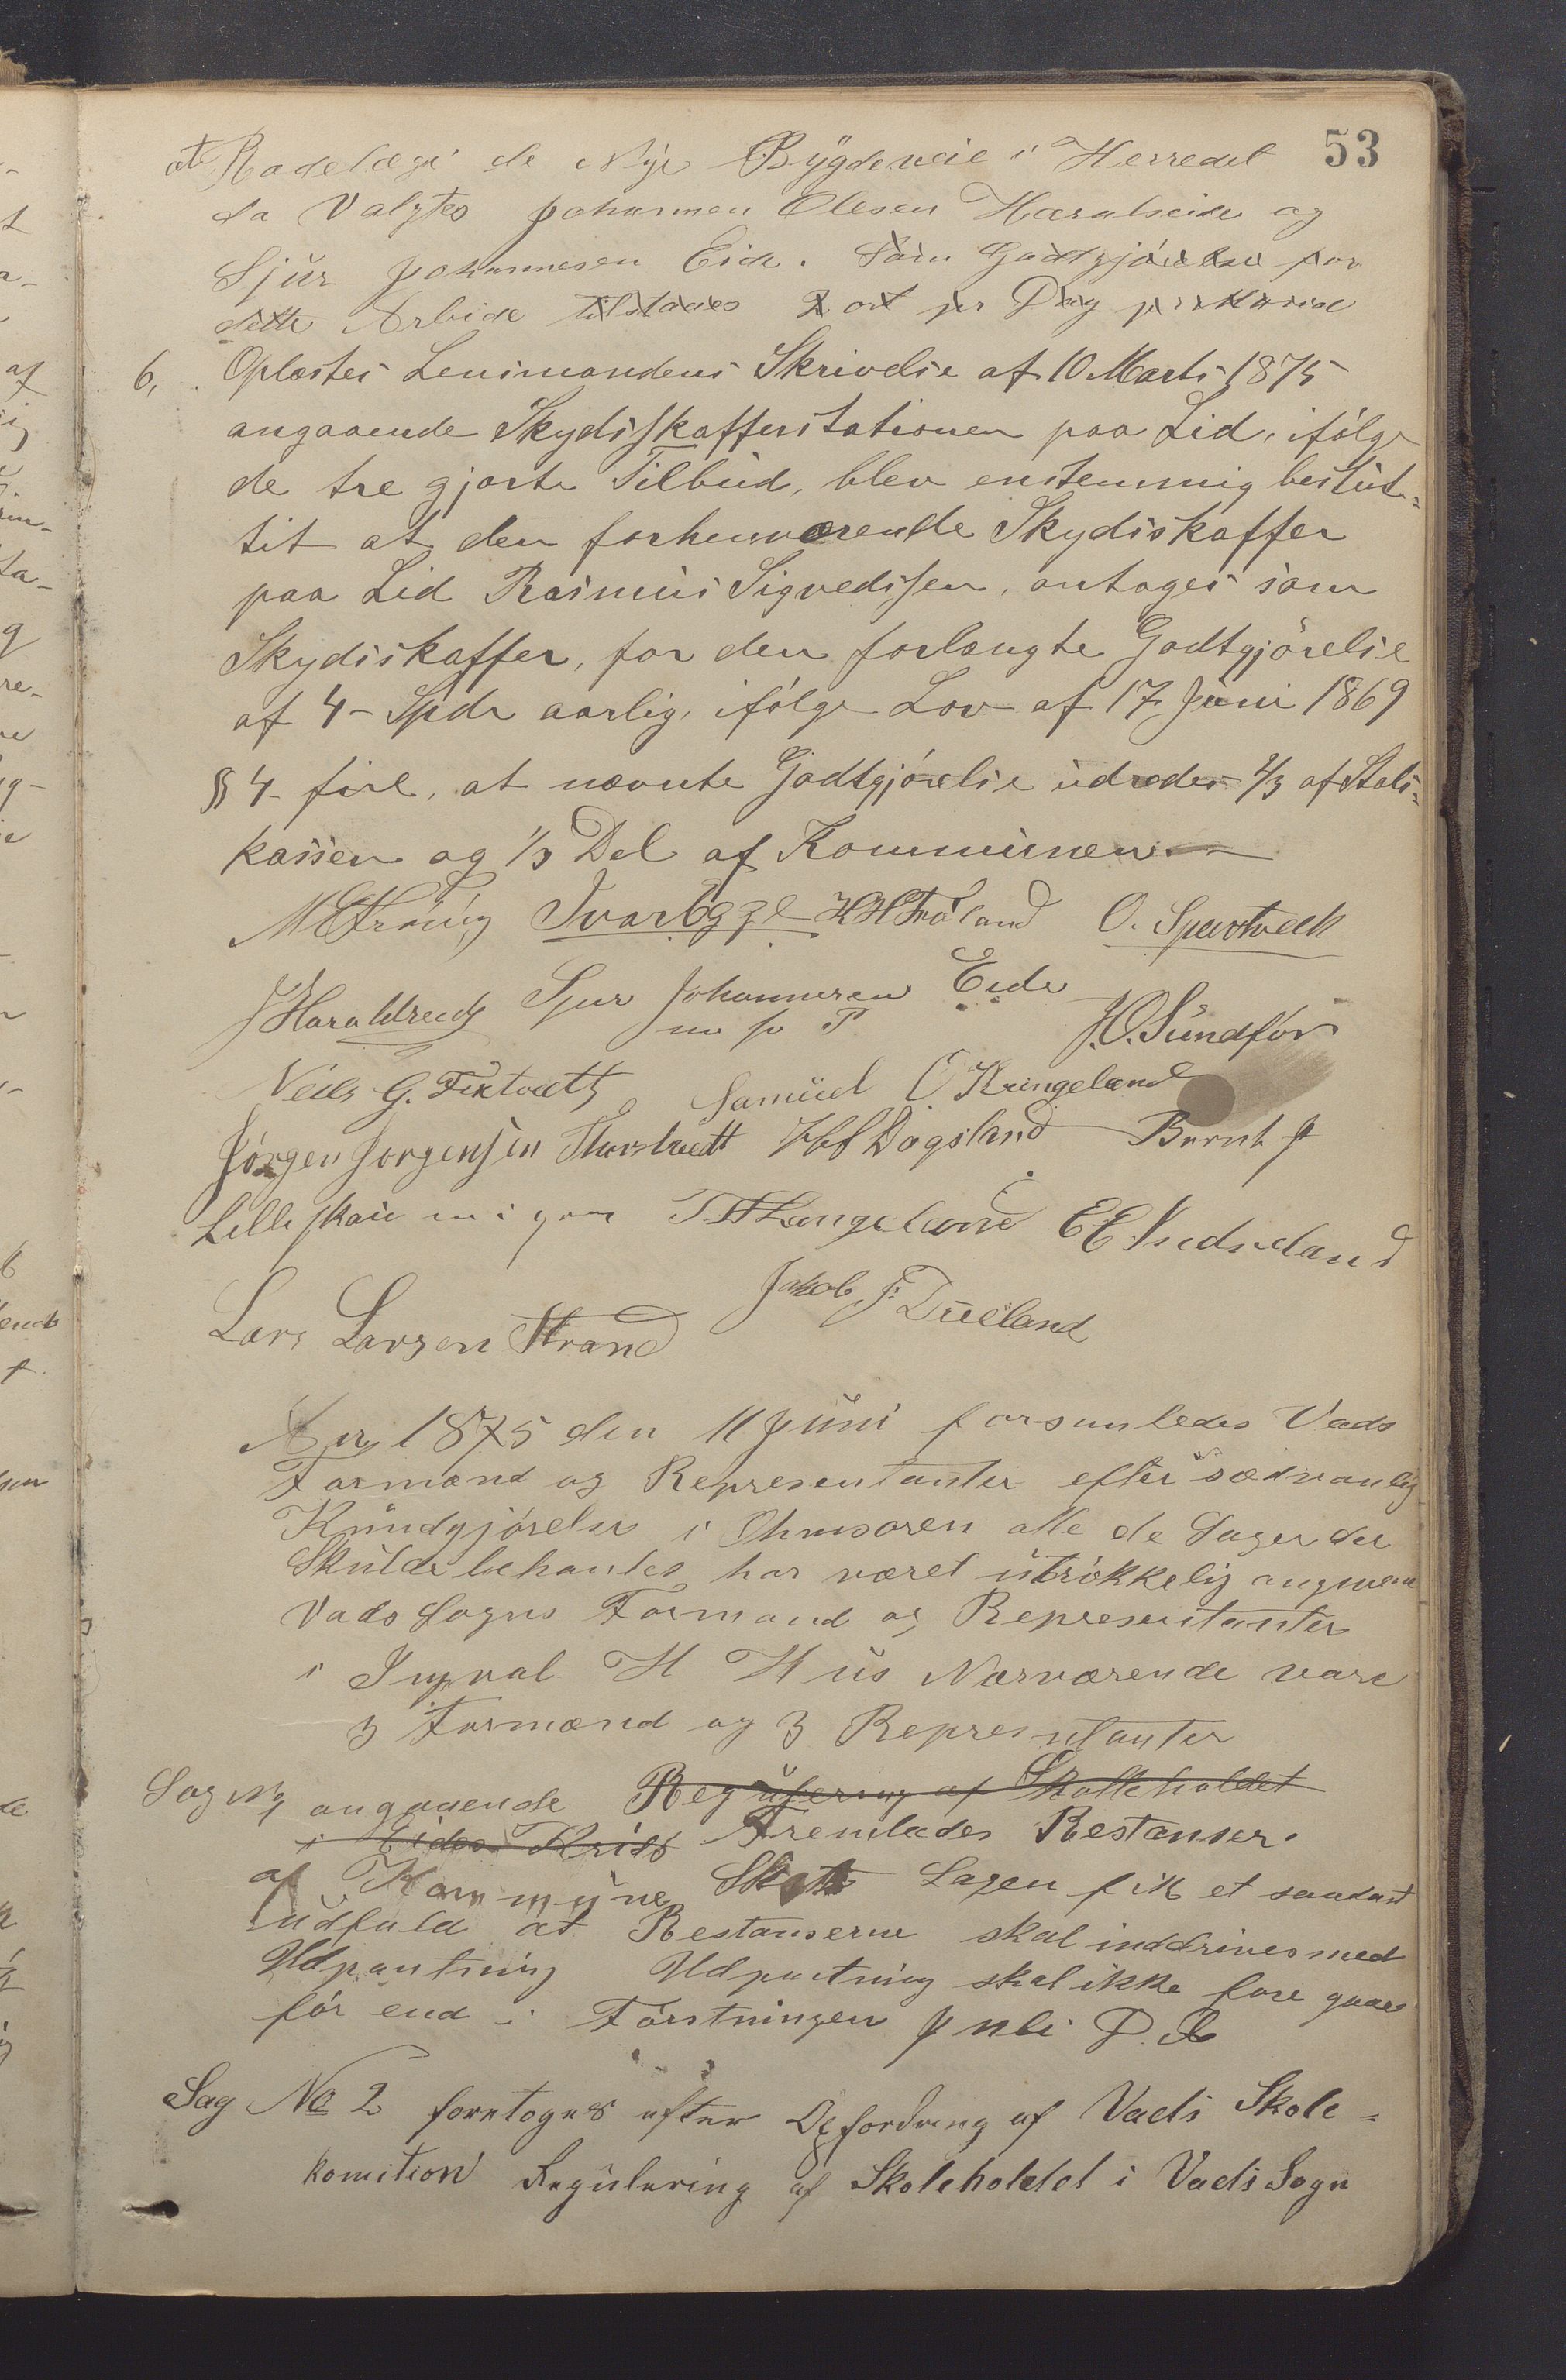 53
at Rodelægi de Nye Bygdeveie i Herredet
da Valgtes Johannen Olesen Haralseide og
Sjur Johannesen Eide. Som Godtgjörelse for
dette Arbide tilstaaes 2 ort pr Dag pr Mand
6, Oplæstes Lensmandens Skrivelse af 10 Marts 1875
angaaende Skydsskafferstationen paa Lid, ifölge
de tre gjorte Tilbud, blev enstemmig beslut=
tit at den forhenværende Skydskaffer
paa Lid Rasmus Sigvedssen, antages som
Skydskaffer, for den forlangte Godtgjörelse
af 4 - Spdr aarlig, ifölge Lov af 17 Juni 1869
§ 4 - fire, at nævnte Godtgjörelse udredes 2/3 af Stats=
kassen og 1/3 Del af Kommunen
HH Fröland O. Spartvedt
J Haraldseid Sjur Johannesen Eide
m f P J.O. Sundför
Neils G. Fixtvedt Samuel O Kringeland
Jörgen Jörgensen Storstvedt Dagsland Bernt J
Lilleskau T. T Langeland EE
Jakob J. Dueland
Lars Larsen Strand
Aar 1875 den 11 Juni forsamledes Vads
Formænd og Representanter efter sædvanlig
Kundgjörelse i Ohmsoren alle de Sager der
Skulde behantes har været utrökkelig angivene
Vads Sogns Formænd og Representanter
i Ingval H Hus Nærværende vare
3 Formænd og 3 Representanter
Sag No 1 angaaende Regulering af Skolleholdet
i Eides Kreds Fremlædes Restanser
af Kommune Skat Sagen fik et saadant
udfald at Restanserne skal inddrives med
Udpantning Udpantning skal ikke fore gaaes
för end i Förstningen Juli D. A
Sag No 2 foretoges efter Opfordring af Vads Skole=
komition Regulering af Skoleholdet i Vads Sogn